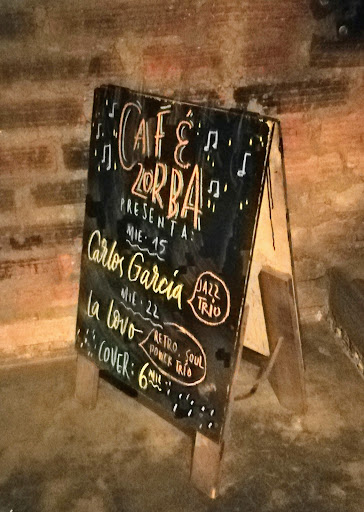 CAFÉ
ZORBA
PRESENTA:
MIE. 15
Carlos García
JAZZ
TRIO
MIE. 22
La Lovo
RETRO SOUL
POWER TRÍO
COVER: 6 MIL